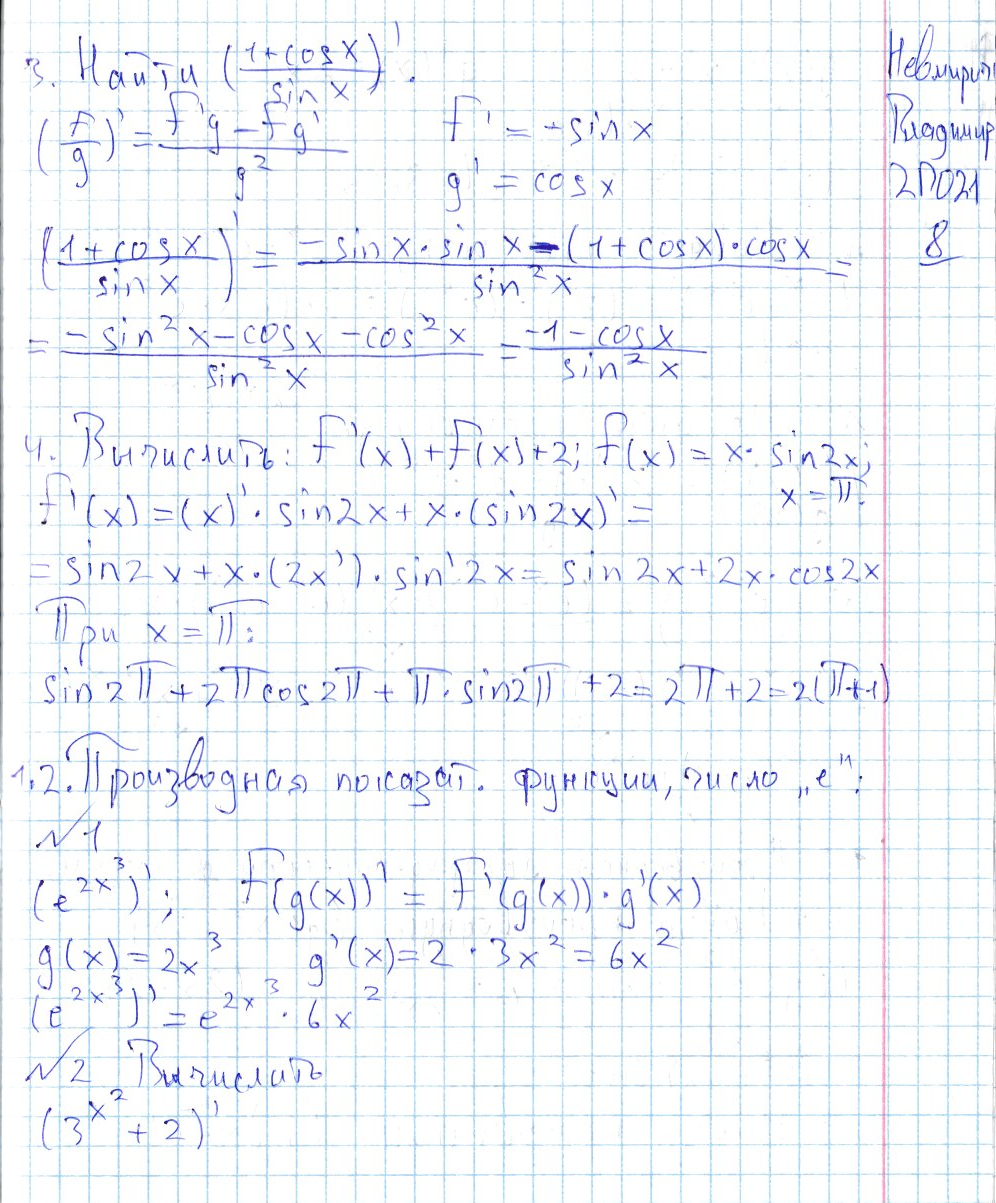 3. Найти ((1+cosx)/(sin x))'.
(f/g)' = (f'g - fg')/g² f' = -sin x
g' = cos x
((1+cosx)/(sin x))' = (-sinx·sin x - (1+cosx)·cosx)/(sin²x) =
= (-sin²x - cosx - cos²x)/(sin²x) = (-1-cosx)/(sin²x)
4. Вычислить: f'(x)+f(x)+2; f(x) = x· sin2x;
x = π.
f'(x) = (x)'· sin2x + x·(sin2x)' =
= sin2x + x·(2x')·sin'2x = sin2x+2x·cos2x
При x = π:
sin2π + 2πcos2π + π·sin2π + 2 = 2π+2 = 2(π+1)
1.2. Производная показат. функции, число „e":
№1
(e^(2x³))'; f(g(x))' = f'(g(x))·g'(x)
g(x) = 2x³ g'(x) = 2·3x² = 6x²
(e^(2x³))' = e^(2x³)·6x²
№2 Вычислить
(3^(x²) + 2)'
Владимир
2ПО21
8